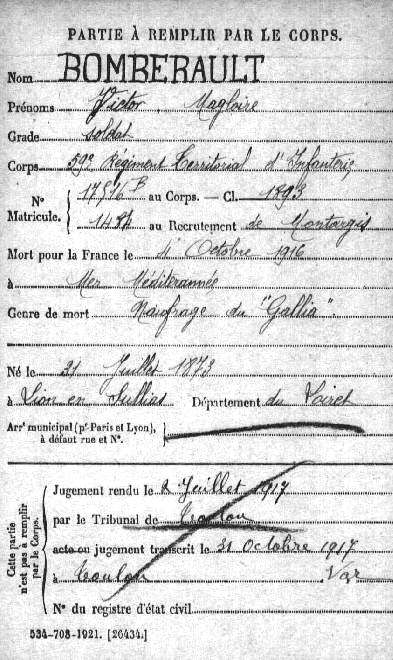 PARTIE À REMPLIR PAR LE CORPS.
Nom BOMBERAULT
Prénoms Victor Magloire
Grade soldat
Corps 59e Régiment Territorial d'Infanterie
N° Matricule. 17516 B au Corps. — Cl. 1893
au Recrutement de Montargis
Mort pour la France le 4 Octobre 1916
à Mer Méditerannée
Genre de mort Naufrage du "Gallia".
Né le 31 Juillet 1873
à Lion en Sullias Département du Loiret
Arrt municipal (pr Paris et Lyon),
à défaut rue et N°.
Cette partie n'est pas à remplir par le Corps.
Jugement rendu le Juillet 1917
par le Tribunal de Toulon
acte ou jugement transcrit le 31 Octobre 1917
à Toulon Var
N° du registre d'état civil
534-708-1921. [26434.]